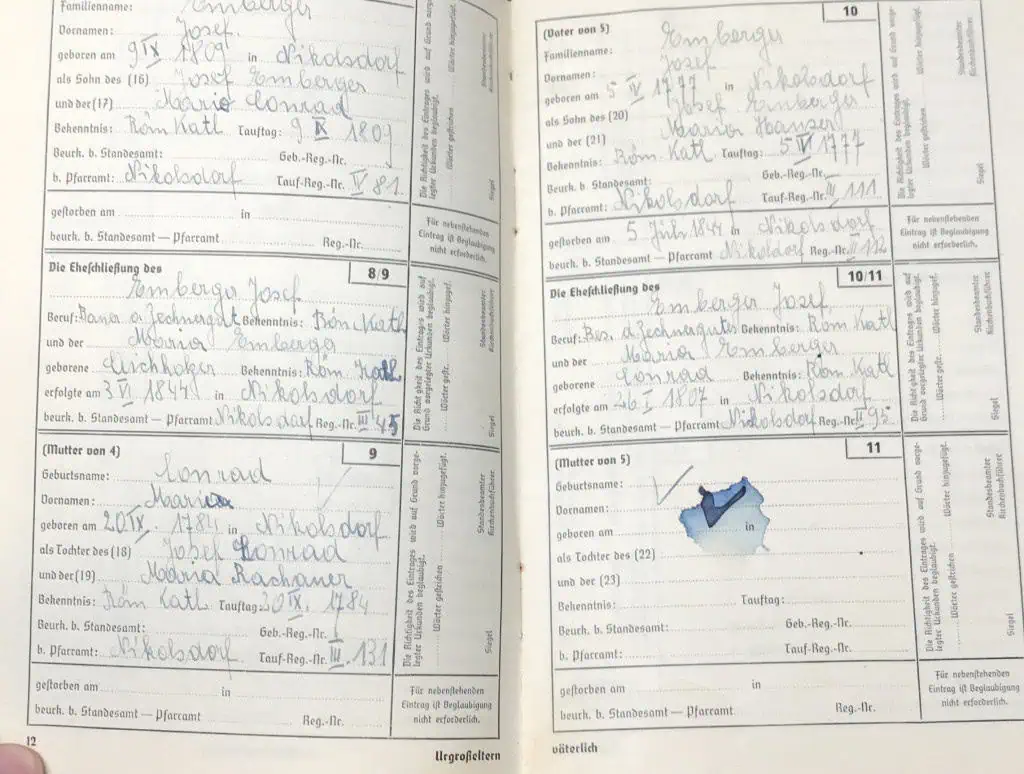 Familienname: Emberger
Vornamen: Josef.
geboren am 9 IX 1809 in Nikolsdorf
als Sohn des (16) Josef Emberger
und der (17) Maria Conrad
Bekenntnis: Röm Katl Tauftag: 9 IX 1809
Beurk. b. Standesamt: Geb.-Reg.-Nr.
b. Pfarramt: Nikolsdorf Tauf-Reg.-Nr. V 81.
gestorben am in
beurk. b. Standesamt — Pfarramt Reg.-Nr.
Die Richtigkeit des Eintrages wird auf Grund vorge-
legter Urkunden beglaubigt.
Wörter hinzugefügt.
Wörter gestrichen
Standesbeamter
Kirchenbuchführer
Siegel
Für nebenstehenden
Eintrag ist Beglaubigung
nicht erforderlich.
Die Eheschließung des 8/9
Emberger Josef
Beruf: Bauer a Zechnergut Bekenntnis: Röm Katl
und der Maria Emberger
geborene Bekenntnis: Röm Katl
erfolgte am 3 VI 1844 in Nikolsdorf
beurk. b. Standesamt — Pfarramt Nikolsdorf Reg.-Nr. III 45
Die Richtigkeit des Eintrages wird auf
Grund vorgelegter Urkunden beglaubigt.
Wörter hinzugef.
Wörter gestr.
Standesbeamter
Kirchenbuchführer
Siegel
(Mutter von 4) 9
Geburtsname: Conrad
Vornamen: Maria
geboren am 20 IX. 1784 in Nikolsdorf
als Tochter des (18) Josef Conrad
und der (19) Maria Rachaner
Bekenntnis: Röm Katl Tauftag: 20 IX. 1784
Beurk. b. Standesamt: Geb.-Reg.-Nr.
b. Pfarramt: Nikolsdorf Tauf-Reg.-Nr. III. 131
gestorben am in
beurk. b. Standesamt — Pfarramt Reg.-Nr.
Die Richtigkeit des Eintrages wird auf Grund vorge-
legter Urkunden beglaubigt.
Wörter hinzugefügt.
Wörter gestrichen
Standesbeamter
Kirchenbuchführer
Siegel
Für nebenstehenden
Eintrag ist Beglaubigung
nicht erforderlich.
12
Urgroßeltern
(Vater von 5) 10
Familienname: Emberger
Vornamen: Josef
geboren am 5 IV 1777 in Nikolsdorf
als Sohn des (20) Josef Emberger
und der (21) Maria Hanser
Bekenntnis: Röm Katl Tauftag: 5 IV 1777
Beurk. b. Standesamt: Geb.-Reg.-Nr.
b. Pfarramt: Nikolsdorf Tauf-Reg.-Nr. III 111
gestorben am 5 Juli 1844 in Nikolsdorf
beurk. b. Standesamt — Pfarramt Nikolsdorf Reg.-Nr. II 112
Die Richtigkeit des Eintrages wird auf Grund vorge-
legter Urkunden beglaubigt.
Wörter hinzugefügt.
Wörter gestrichen
Standesbeamter
Kirchenbuchführer
Siegel
Für nebenstehenden
Eintrag ist Beglaubigung
nicht erforderlich.
Die Eheschließung des 10/11
Emberger Josef
Beruf: Bes. d Zechnergutes Bekenntnis: Röm Katl
und der Maria Emberger
geborene Conrad Bekenntnis: Röm Katl
erfolgte am 26 I 1807 in Nikolsdorf
beurk. b. Standesamt — Pfarramt Nikolsdorf Reg.-Nr. II 95
Die Richtigkeit des Eintrages wird auf
Grund vorgelegter Urkunden beglaubigt.
Wörter hinzugef.
Wörter gestr.
Standesbeamter
Kirchenbuchführer
Siegel
(Mutter von 5) 11
Geburtsname:
Vornamen:
geboren am in
als Tochter des (22)
und der (23)
Bekenntnis: Tauftag:
Beurk. b. Standesamt: Geb.-Reg.-Nr.
b. Pfarramt: Tauf-Reg.-Nr.
gestorben am in
beurk. b. Standesamt — Pfarramt Reg.-Nr.
Die Richtigkeit des Eintrages wird auf Grund vorge-
legter Urkunden beglaubigt.
Wörter hinzugefügt.
Wörter gestrichen
Standesbeamter
Kirchenbuchführer
Siegel
Für nebenstehenden
Eintrag ist Beglaubigung
nicht erforderlich.
väterlich